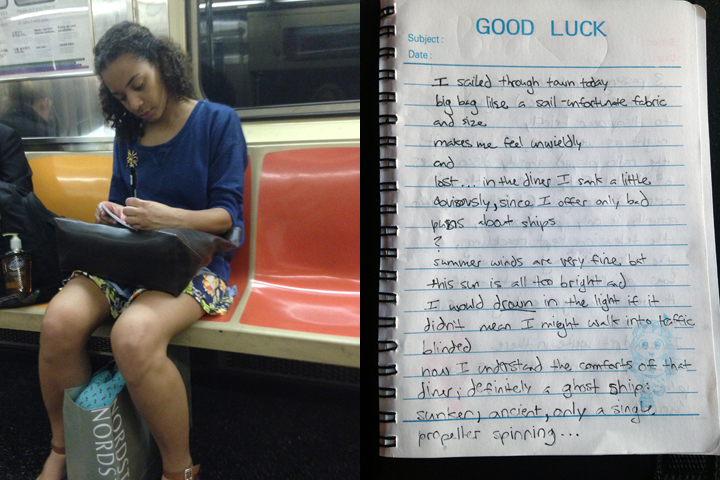 GOOD LUCK
Subject:
Date:
I sailed through town today
big bag like a sail - unfortunate fabric
and size
makes me feel unwieldly
and
lost... in the diner I sank a little,
obviously, since I offer only bad
puns about ships
?
summer winds are very fine but
this sun is all too bright and
I would drown in the light if it
didn't mean I might walk into traffic
blinded
now I understand the comforts of that
diner; definitely a ghost ship:
sunken, ancient, only a single
propeller spinning...
NORDS